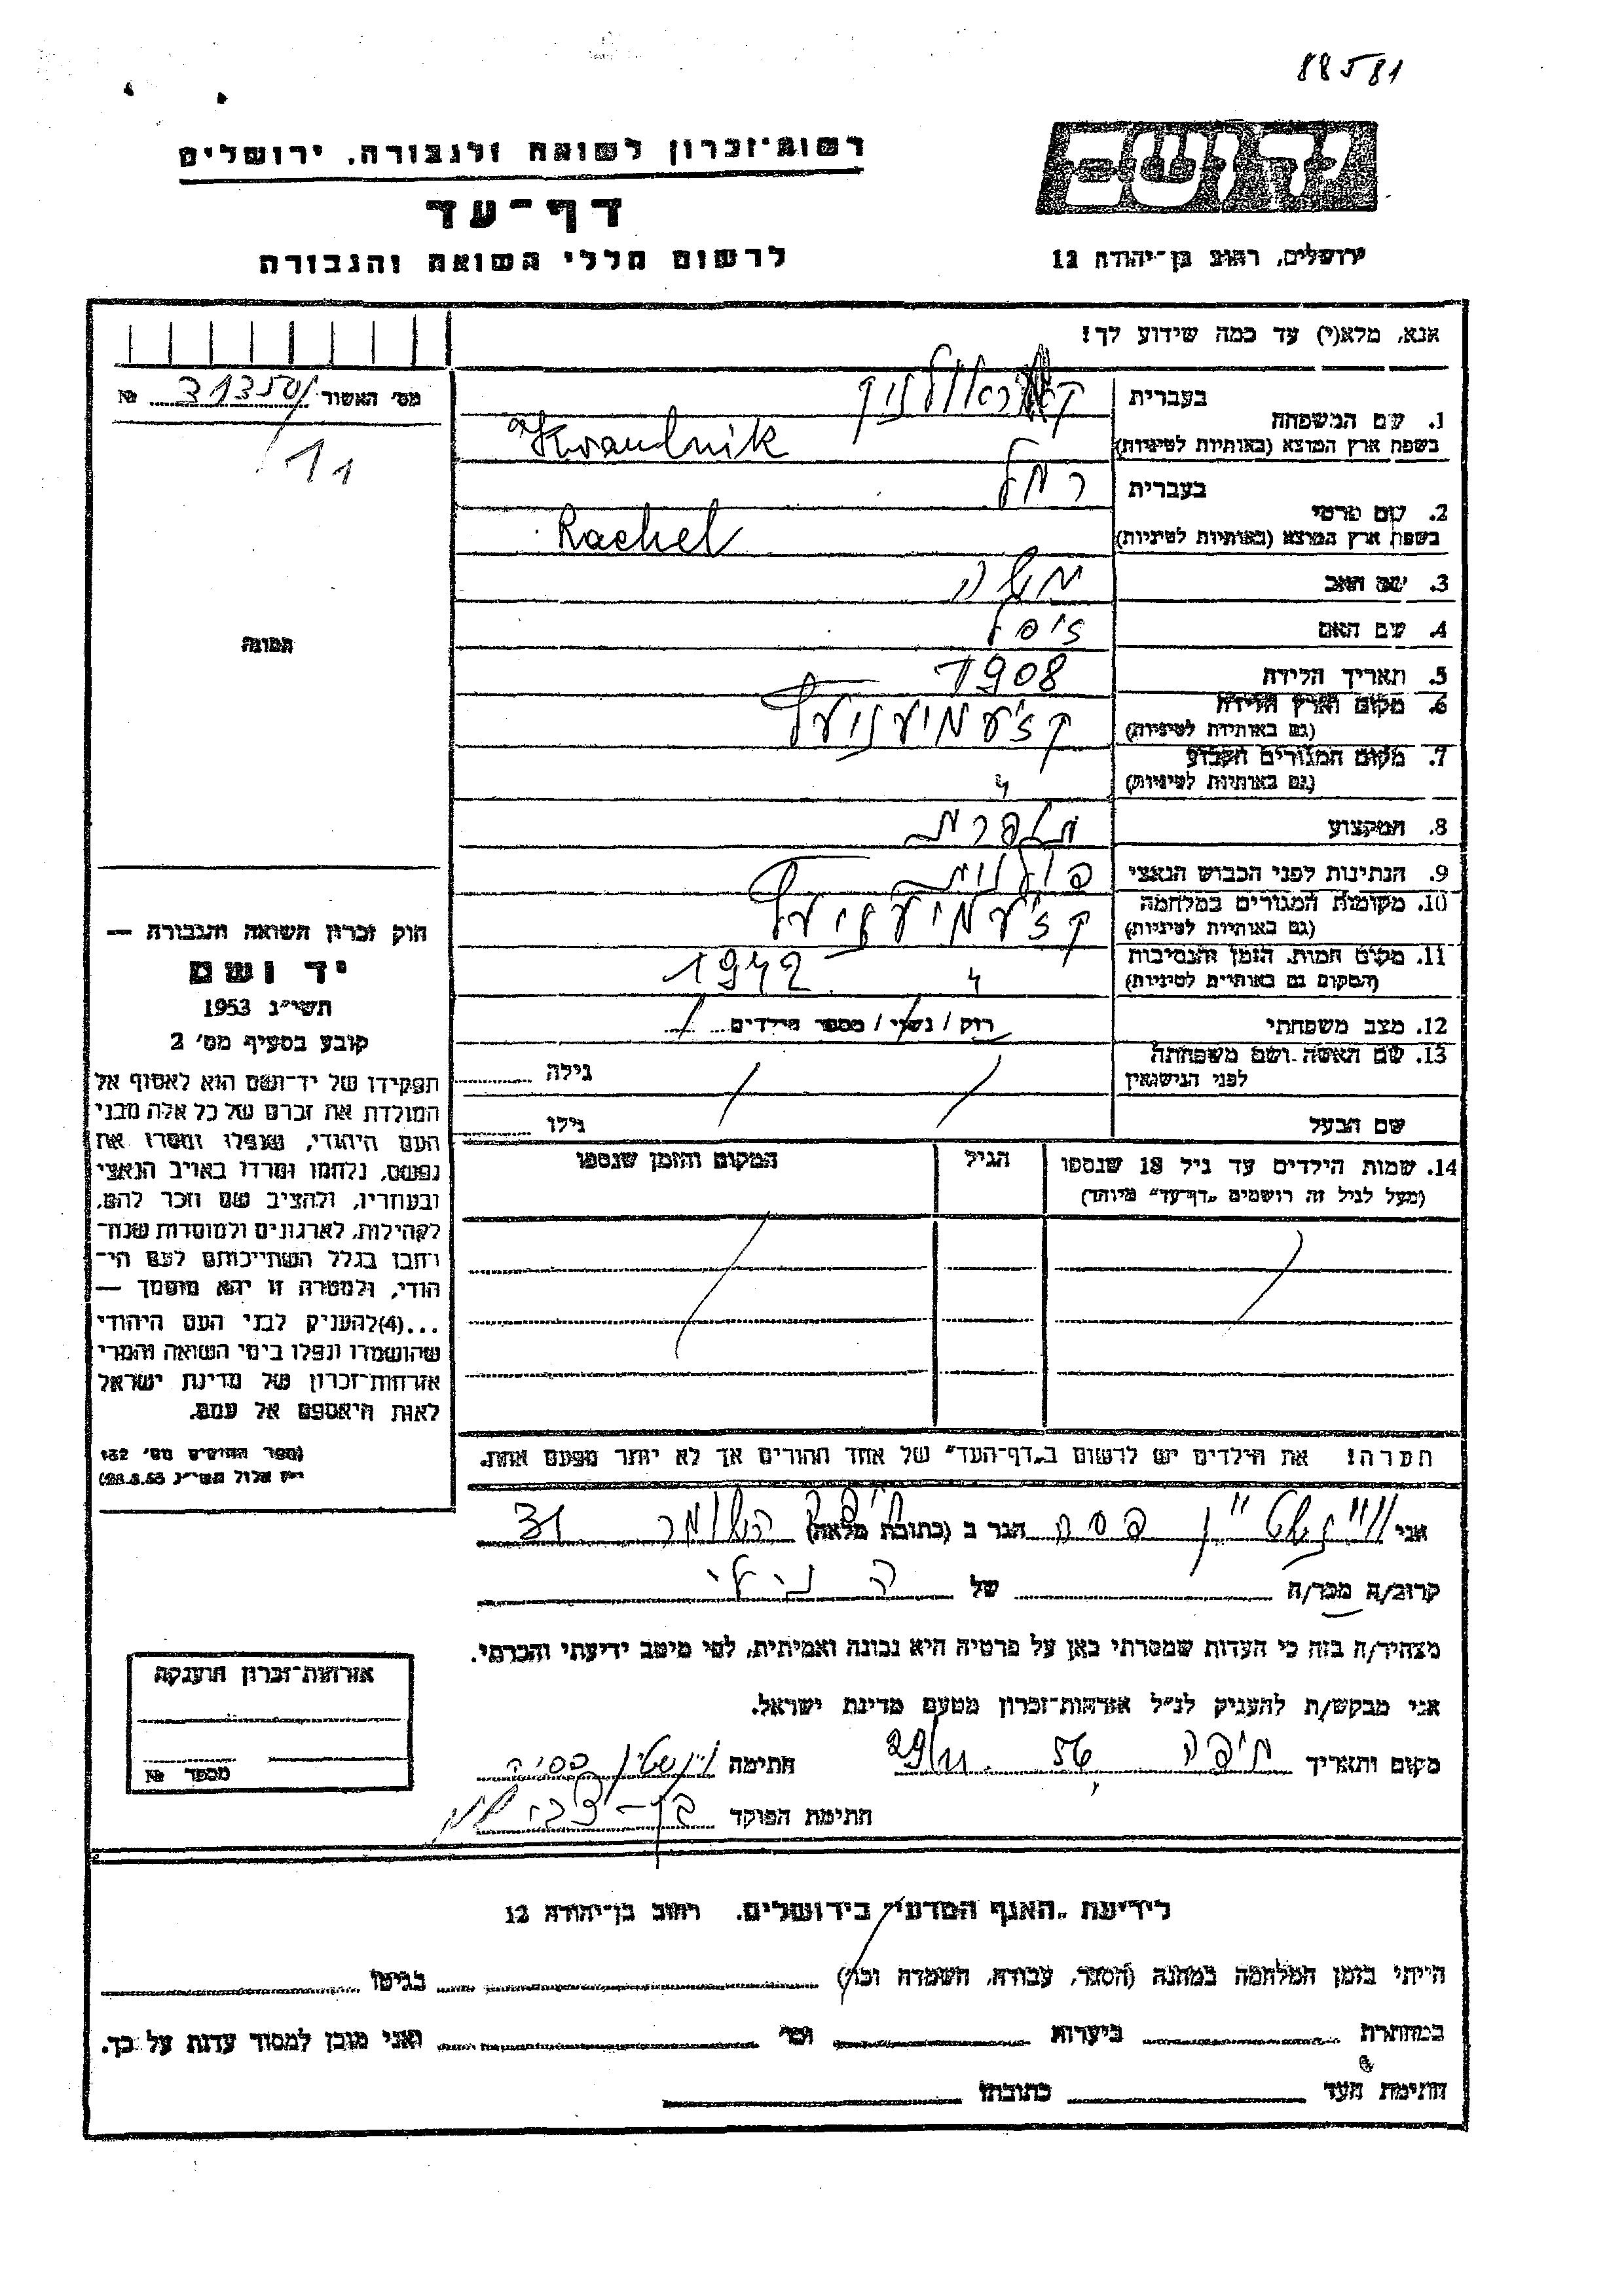 88581
רשות-זכרון לשואה ולגבורה, ירושלים
דף-עד
לרשום חללי השואה והגבורה
יד ושם
ירושלים, רחוב בן-יהודה 12
אנא, מלא(י) עד כמה שידוע לך!
מס' האשור 31350/ №
11
תמונה
1. שם המשפחה
בעברית
בשפת ארץ המוצא (באותיות לטיניות) Kraulnik
2. שם פרטי
בעברית רחל
בשפת ארץ המוצא (באותיות לטיניות) Rachel
3. שם האב משה
4. שם האם ציפל
5. תאריך הלידה 1908
6. מקום וארץ הלידה
(גם באותיות לטיניות) קז'עמיעניעץ
7. מקום המגורים הקבוע
(גם באותיות לטיניות) "
8. המקצוע תופרת
9. הנתינות לפני הכבוש הנאצי פולנית
10. מקומות המגורים במלחמה
(גם באותיות לטיניות) קז'עמיעניעץ
11. מקום המות, הזמן והנסיבות
(המקום גם באותיות לטיניות) " 1942
12. מצב משפחתי רוק / נשוי / מספר הילדים /
13. שם האשה ושם משפחתה
לפני הנישואין גילה
שם הבעל גילו
14. שמות הילדים עד גיל 18 שנספו
(מעל לגיל זה רושמים "דף-עד" מיוחד)
הגיל
המקום והזמן שנספו
חוק זכרון השואה והגבורה —
יד ושם
תשי"ג 1953
קובע בסעיף מס' 2
תפקידו של יד-ושם הוא לאסוף אל
המולדת את זכרם של כל אלה מבני
העם היהודי, שנפלו ומסרו את
נפשם, נלחמו ומרדו באויב הנאצי
ובעוזריו, ולהציב שם וזכר להם,
לקהילות, לארגונים ולמוסדות שנח-
רבו בגלל השתייכותם לעם הי-
הודי, ולמטרה זו יהא מוסמך —
...(4) להעניק לבני העם היהודי
שהושמדו ונפלו בימי השואה והמרי
אזרחות-זכרון של מדינת ישראל
לאות היאספם אל עמם.
(ספר החוקים מס' 132
י"ז אלול תשי"ג 28.8.53)
הערה! את הילדים יש לרשום ב"דף-העד" של אחד ההורים אך לא יותר מפעם אחת.
אני וויינשטיין פסיה הגר ב (כתובת מלאה) חיפה השומר 31
קרוב/ה מכר/ה של הנ"ל
מצהיר/ה בזה כי העדות שמסרתי כאן על פרטיה היא נכונה ואמיתית, לפי מיטב ידיעתי והכרתי.
אני מבקש/ת להעניק לנ"ל אזרחות-זכרון מטעם מדינת ישראל.
מקום ותאריך חיפה 29/11 56 חתימה וינשטין פסיה
חתימת הפוקד בן-צבי
אזרחות-זכרון הוענקה
מספר №
לידיעת "האגף המדעי" בירושלים, רחוב בן-יהודה 12
הייתי בזמן המלחמה במחנה (הסגר, עבודה, השמדה וכו') בגיטו
במחתרת ביערות וכו' ואני מוכן למסור עדות על כך.
חתימת העד כתובתו